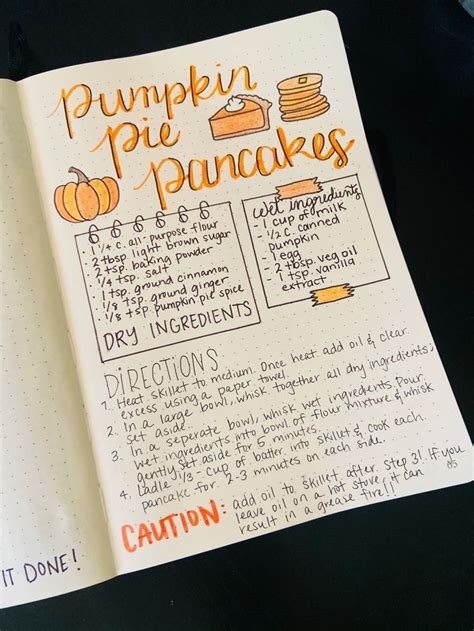 Pumpkin
Pie
Pancakes
1 1/4 C. all-purpose flour
2 tbsp. light brown sugar
2 tsp. baking powder
1/4 tsp. salt
1 tsp. ground cinnamon
1/8 tsp. ground ginger
1/8 tsp. pumpkin pie spice
DRY INGREDIENTS
wet ingredients
- 1 cup of milk
- 1/2 C. canned
pumpkin
- 1 egg
- 2 tbsp. veg oil
- 1 tsp. vanilla
extract
DIRECTIONS
1. Heat skillet to medium. Once heat add oil & clear
excess using a paper towel.
2. In a large bowl, whisk together all dry ingredients;
set aside.
3. In a seperate bowl, whisk wet ingredients. Pour
wet ingredients into bowl of flour mixture & whisk
gently. Set aside for 5 minutes.
4. Ladle 1/3-cup of batter into skillet & cook each
pancake for 2-3 minutes on each side.
CAUTION: add oil to skillet after step 3! If you
leave oil on a hot stove, it can
result in a grease fire!!
IT DONE!